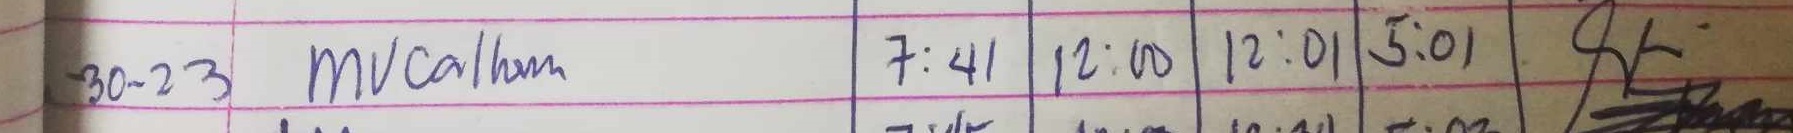 -30-23 MVCalhum 7:41 12:00 12:01 5:01